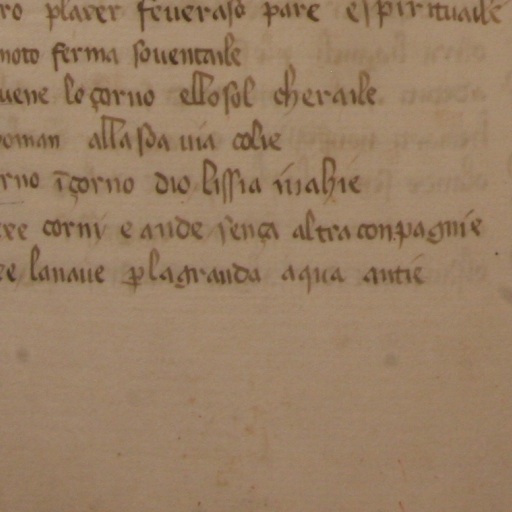 ro plaxer feveraso pare espirituaile
moto ferma soventaile
vene lo çorno ello sol cheraile
doman alla sda via colie
rno īçorno dio lissia inahie
ere corni e ande sença altra conpagnie
re lanave ꝑ la granda aqua antie